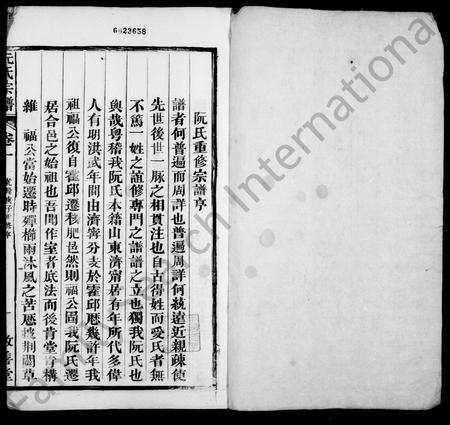 6023658
阮氏重修宗譜序
譜者何普遍而周詳也普遍周詳何統遠近親疎使
先世後世一脉之相貫注也自古得姓而受氏者無
不篤一姓之誼修專門之譜譜之立也獨我阮氏也
與哉粤稽我阮氏本籍山東濟甯居有年所代多偉
人有明洪武年間由濟甯分支於霍邱歷幾許年我
祖福公復自霍邱遷移肥邑然則福公固我阮氏遷
居合邑之始祖也吾聞作室者底法而後肯堂肯構
維 福公當始遷時殫櫛雨沐風之苦歷披荆闢草
阮氏宗譜 卷一
一 敦善堂
FamilySearch International